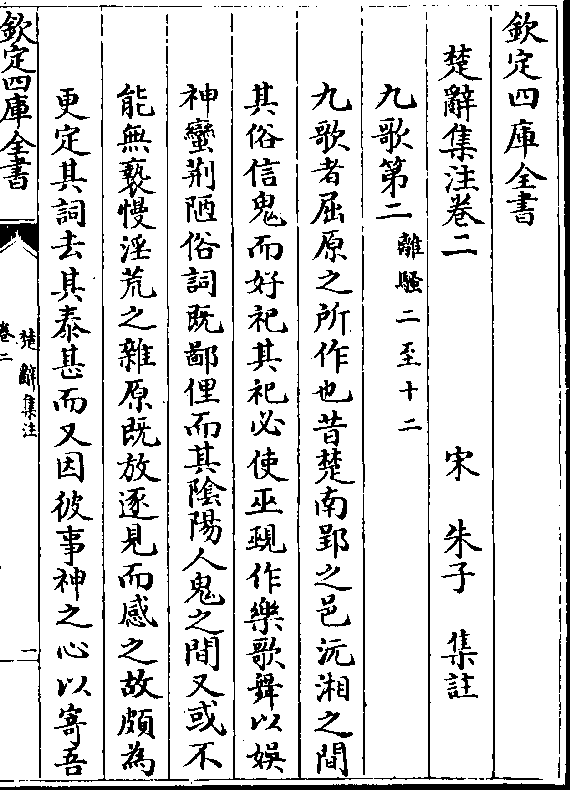 欽定四庫全書
楚辭集注卷二
宋 朱子 集註
九歌第二 離騷二至十二
九歌者屈原之所作也昔楚南郢之邑沅湘之間
其俗信鬼而好祀其祀必使巫覡作樂歌舞以娛
神蠻荆陋俗詞既鄙俚而其陰陽人鬼之間又或不
能無褻慢淫荒之雜原既放逐見而感之故頗為
更定其詞去其泰甚而又因彼事神之心以寄吾
欽定四庫全書
楚辭集注
卷二
一